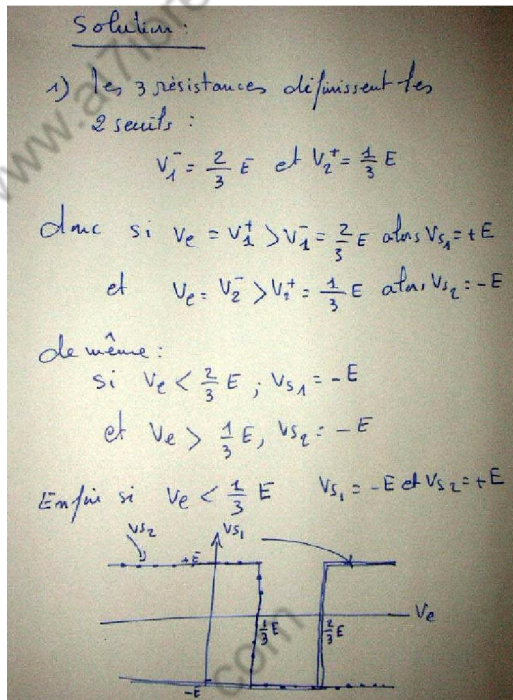 Solution:
1) les 3 résistances définissent les
2 seuils :
V₁⁻ = 2/3 E et V₂⁺ = 1/3 E
donc si Ve = V₁⁺ > V₁⁻ = 2/3 E alors Vs₁ = +E
et Ve = V₂⁻ > V₂⁺ = 1/3 E alors Vs₂ = -E
de même :
si Ve < 2/3 E ; Vs₁ = -E
et Ve > 1/3 E, Vs₂ = -E
Enfin si Ve < 1/3 E Vs₁ = -E et Vs₂ = +E
Vs₂ Vs₁
+E
Ve
1/3 E 2/3 E
-E
www.al7ibre
com